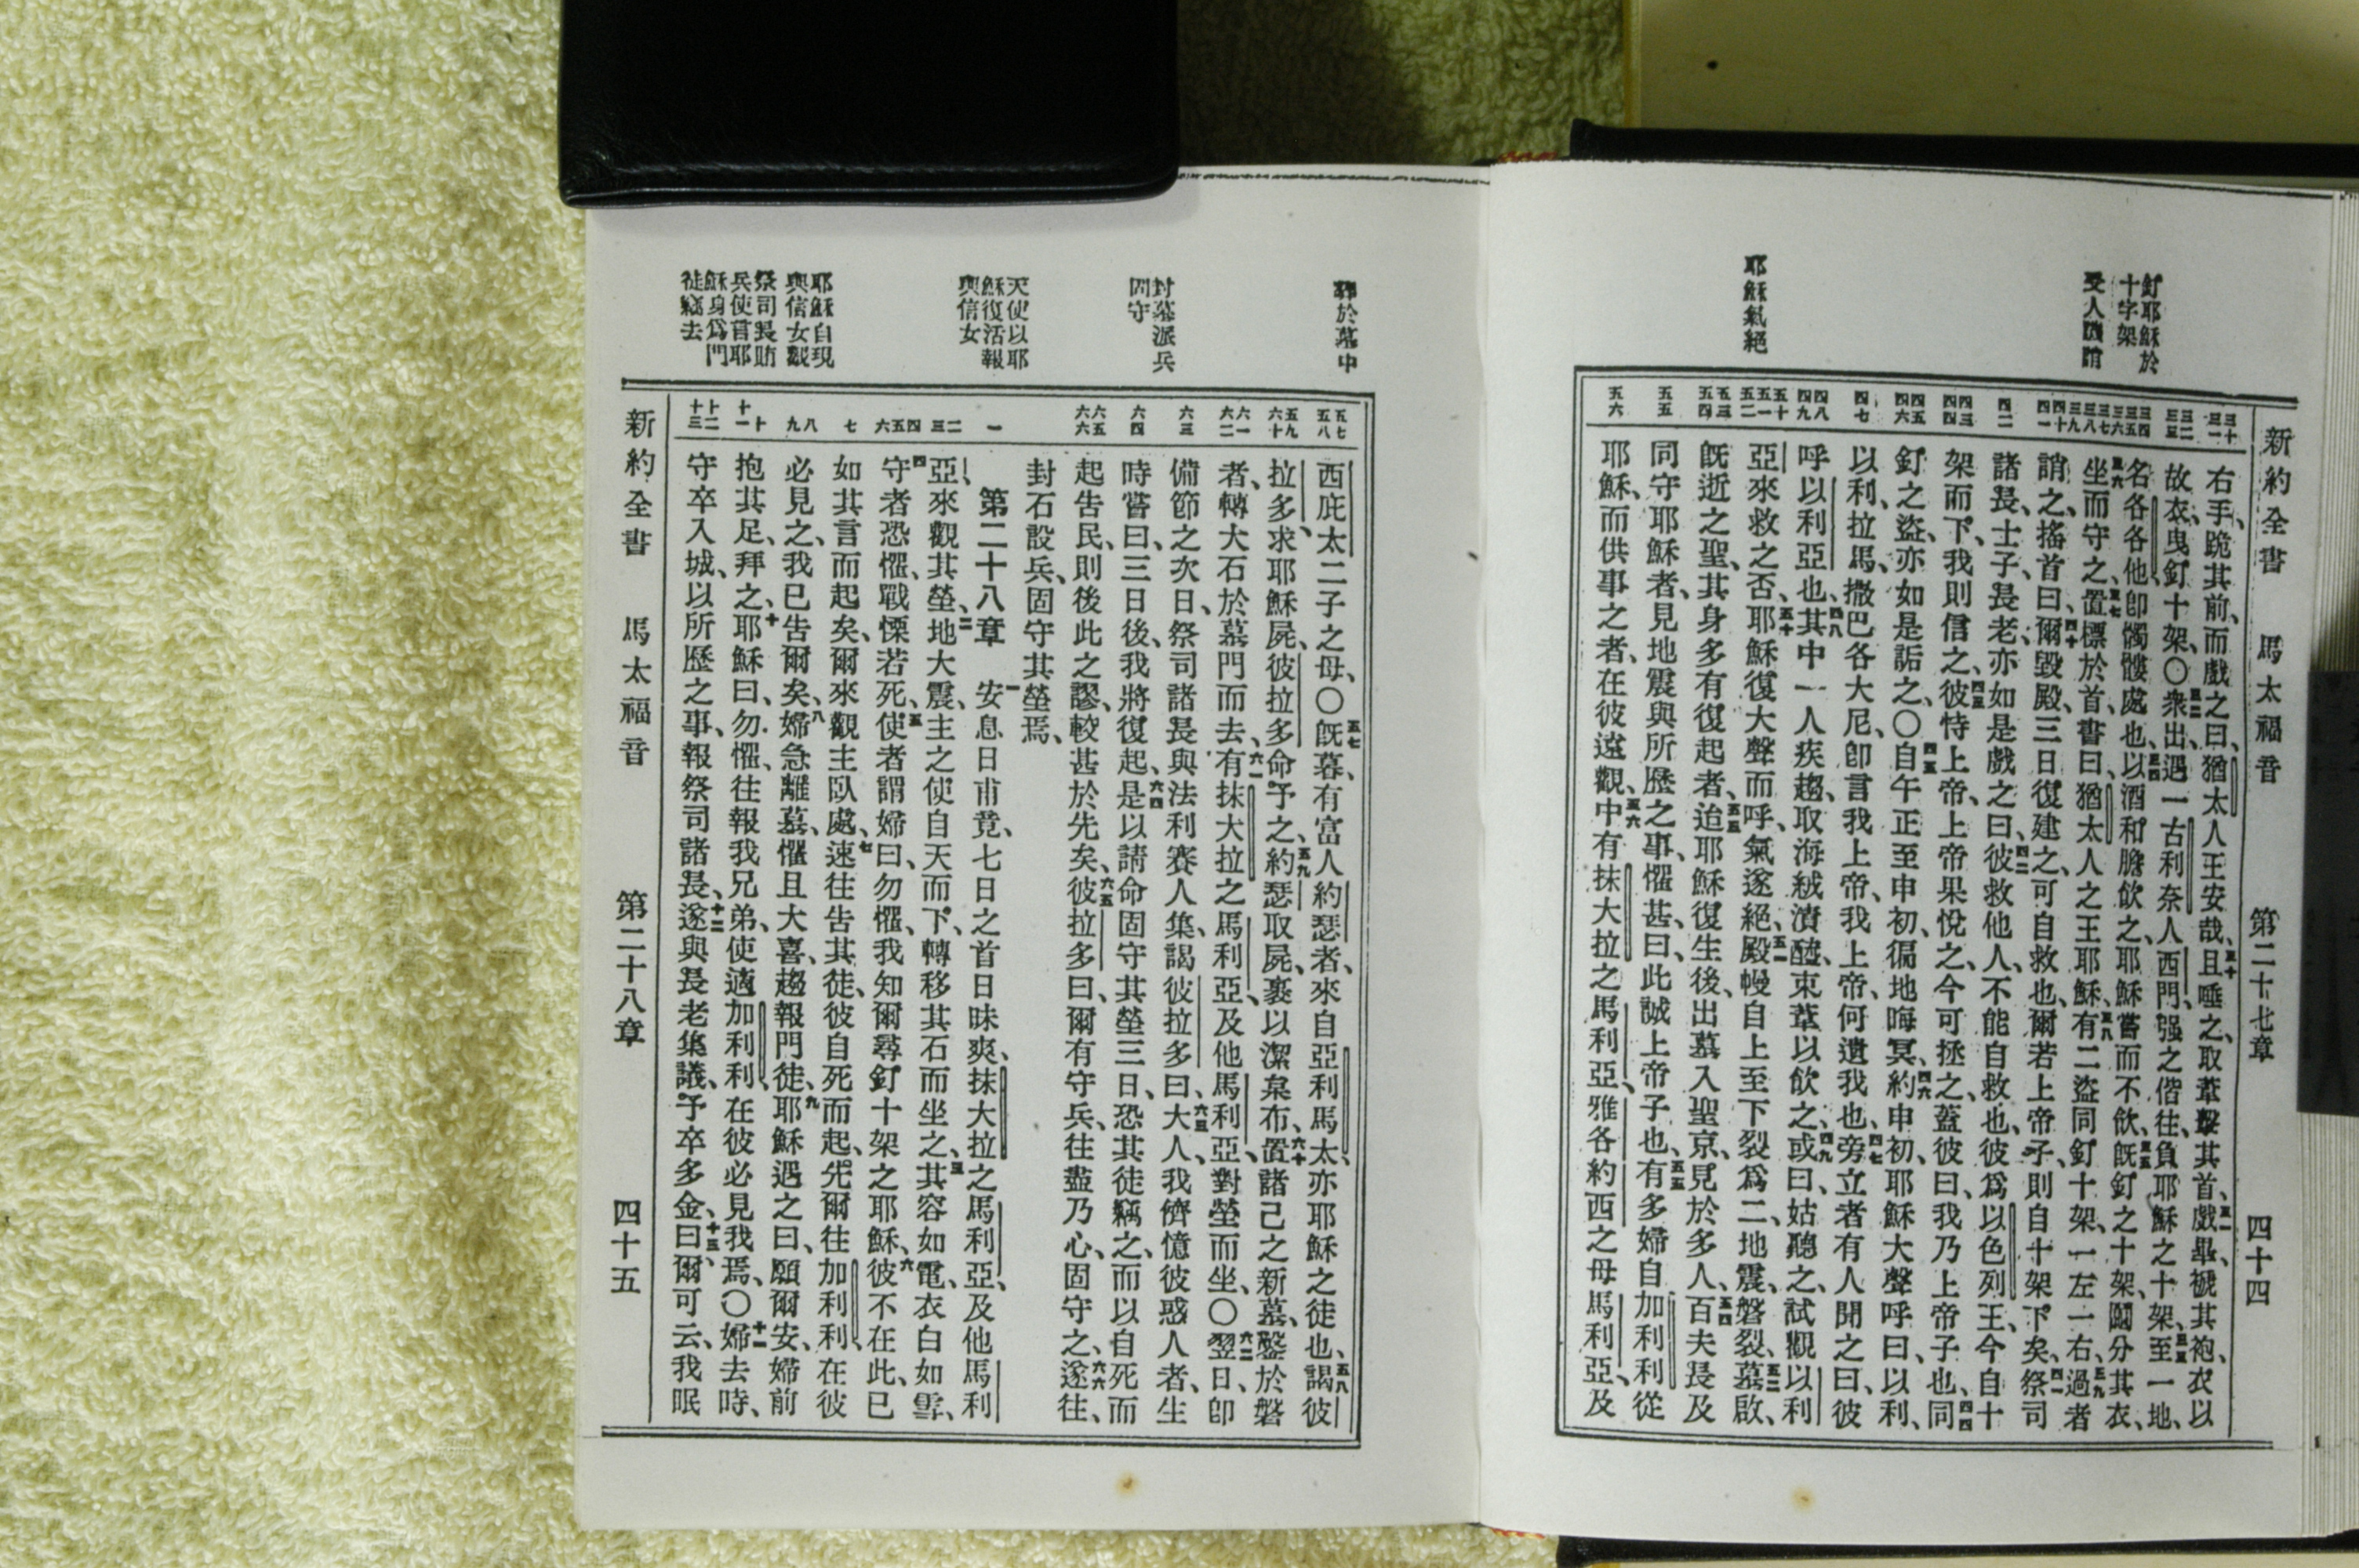 新約全書 馬太福音 第二十七章 四十四
釘耶穌於
十字架
受人戲誚
耶穌氣絕
三十
三一
三二
三三
三四
三五
三六
三七
三八
三九
四十
四一
四二
四三
四四
四五
四六
四七
四八
四九
五十
五一
五二
五三
五四
五五
五六
右手、跪其前、而戲之曰、猶太人王安哉、三十且唾之、取葦擊其首、三一戲畢、褫其袍、衣以
故衣、曳釘十架、〇三二衆出、遇一古利奈人西門、强之偕往、負耶穌之十架、三三至一地、
名各各他、卽髑髏處也、三四以酒和膽飲之、耶穌嘗而不飲、三五旣釘之十架、鬮分其衣、
三六坐而守之、三七置標於首、書曰、猶太人之王耶穌、三八有二盜同釘十架、一左一右、三九過者
誚之、搖首曰、四十爾毀殿、三日復建之、可自救也、爾若上帝子、則自十架下矣、四一祭司
諸長、士子、長老、亦如是戲之曰、四二彼救他人、不能自救也、彼爲以色列王、今自十
架而下、我則信之、四三彼恃上帝、上帝果悅之、今可拯之、蓋彼曰、我乃上帝子也、四四同
釘之盜、亦如是詬之、〇四五自午正至申初、徧地晦冥、四六約申初、耶穌大聲呼曰、以利、
以利、拉馬、撒巴各大尼、卽言我上帝、我上帝、何遺我也、四七旁立者有人聞之曰、彼
呼以利亞也、四八其中一人疾趨、取海絨漬醯、束葦以飲之、四九或曰、姑聽之、試觀以利
亞來救之否、五十耶穌復大聲而呼、氣遂絕、五一殿幔自上至下裂爲二、地震、磐裂、五二墓啟、
旣逝之聖、其身多有復起者、五三迨耶穌復生後、出墓入聖京、見於多人、五四百夫長及
同守耶穌者、見地震與所歷之事、懼甚、曰、此誠上帝子也、五五有多婦自加利利從
耶穌、而供事之者、在彼遠觀、五六中有抹大拉之馬利亞、雅各約西之母馬利亞、及
葬於墓中
封墓派兵
固守
天使以耶
穌復活報
與信女
耶穌自現
與信女觀
祭司長賄
兵使言耶
穌身爲門
徒竊去
五七
五八
五九
六十
六一
六二
六三
六四
六五
六六
一
二
三
四
五
六
七
八
九
十
十一
十二
十三
西庇太二子之母、〇五七旣暮、有富人約瑟者、來自亞利馬太、亦耶穌之徒也、五八謁彼
拉多、求耶穌屍、彼拉多命予之、五九約瑟取屍、裹以潔枲布、六十置諸己之新墓、鑿於磐
者、轉大石於墓門而去、六一有抹大拉之馬利亞、及他馬利亞、對塋而坐、〇六二翌日、卽
備節之次日、祭司諸長與法利賽人集、謁彼拉多曰、六三大人、我儕憶彼惑人者、生
時嘗曰、三日後、我將復起、六四是以請命固守其塋三日、恐其徒竊之、而以自死而
起告民、則後此之謬、較甚於先矣、六五彼拉多曰、爾有守兵、往盡乃心、固守之、六六遂往、
封石設兵、固守其塋焉、
第二十八章 一安息日甫竟、七日之首日昧爽、抹大拉之馬利亞、及他馬利
亞、來觀其塋、二地大震、主之使自天而下、轉移其石而坐之、三其容如電、衣白如雪、
四守者恐懼、戰慄若死、五使者謂婦曰、勿懼、我知爾尋釘十架之耶穌、六彼不在此、已
如其言而起矣、爾來觀主臥處、七速往告其徒、彼自死而起、先爾往加利利、在彼
必見之、我已告爾矣、八婦急離墓、懼且大喜、趨報門徒、九耶穌遇之曰、願爾安、婦前
抱其足、拜之、十耶穌曰、勿懼、往報我兄弟、使適加利利、在彼必見我焉、〇十一婦去時、
守卒入城、以所歷之事、報祭司諸長、十二遂與長老集議、予卒多金、十三曰、爾可云、我眠
新約全書 馬太福音 第二十八章 四十五